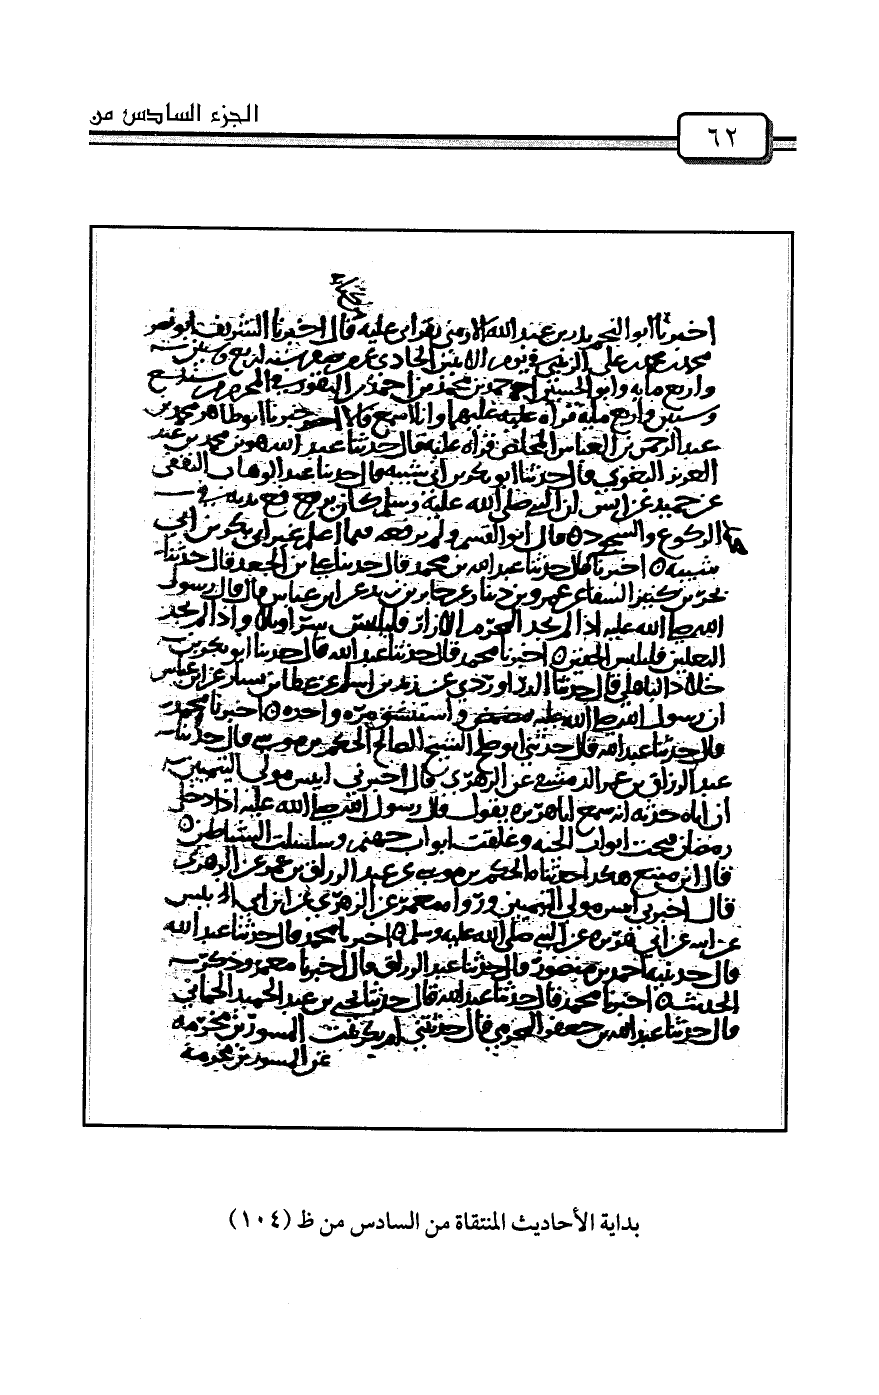 الجزء السادس من
٦٢
اخبرنا ابو النجم بدر بن عبد الله بقراتي عليه قال اخبرنا الشريف ابو نصر
محمد بن محمد بن علي الزينبي في يوم الاثنين الحادي عشر من صفر سنه اربع وسبعين
واربع مايه وابو الحسين احمد بن محمد بن احمد بن النقور في المحرم سنه
وستين واربع مايه قراه عليهما وانا اسمع قالا اخبرنا ابو طاهر محمد بن
عبد الرحمن بن العباس المخلص قراه عليه قال حدثنا عبد الله هو بن محمد بن عبد
العزيز البغوي قال حدثنا ابو بكر بن ابي شيبه قال حدثنا عبد الوهاب الثقفي
عن حميد عن انس ان النبي صلى الله عليه وسلم كان يرفع يديه في
الركوع والسجود قال ابو القسم ولم يرفعه فيما اعلم غير ابي بكر بن ابي
شيبه اخبرنا محمد قال حدثنا عبد الله بن محمد قال حدثنا علي بن الجعد قال حدثنا
بحر بن كنيز السقا عن عمرو بن دينار عن جابر بن زيد عن ابن عباس قال قال رسول
الله صلى الله عليه اذا لم يجد المحرم الازار فليلبس سراويلا واذا لم يجد
النعلين فليلبس الخفين اخبرنا محمد قال حدثنا عبد الله قال حدثنا ابو بكر بن
خلاد الباهلي قال حدثنا الدراوردي عن زيد بن اسلم عن عطا بن يسار عن ابن عباس
ان رسول الله صلى الله عليه مضمض واستنشق مره واحده اخبرنا محمد
قال حدثنا عبد الله قال حدثني ابو صلح الشيخ الصالح الحكم بن موسى قال حدثنا
عبد الرزاق بن عمر الدمشقي عن الزهري قال اخبرني انيس مولى التيميين
ان اباه حدثه انه سمع ابا هريره يقول قال رسول الله صلى الله عليه اذا دخل
رمضان فتحت ابواب الجنه وغلقت ابواب جهنم وسلسلت الشياطين
قال ابن منيع هكذا حدثناه الحكم بن موسى عن عبد الرزاق بن عمر عن الزهري
قال اخبرني انيس مولى التيميين ورواه معمر عن الزهري عن ابن ابي انيس
عن ابيه عن ابي هريره عن النبي صلى الله عليه وسلم اخبرنا محمد قال حدثنا عبد الله
قال حدثنيه احمد بن منصور قال حدثنا عبد الرزاق قال اخبرنا معمر وذكر
الحديث اخبرنا محمد قال حدثنا عبد الله قال حدثنا يحيى بن عبد الحميد الحماني
قال حدثنا عبد الله بن جعفر المخرمي قال حدثتني ام بكر بنت المسور بن مخرمه
عن المسور بن مخرمة
بداية الأحاديث المنتقاة من السادس من ظ (١٠٤)